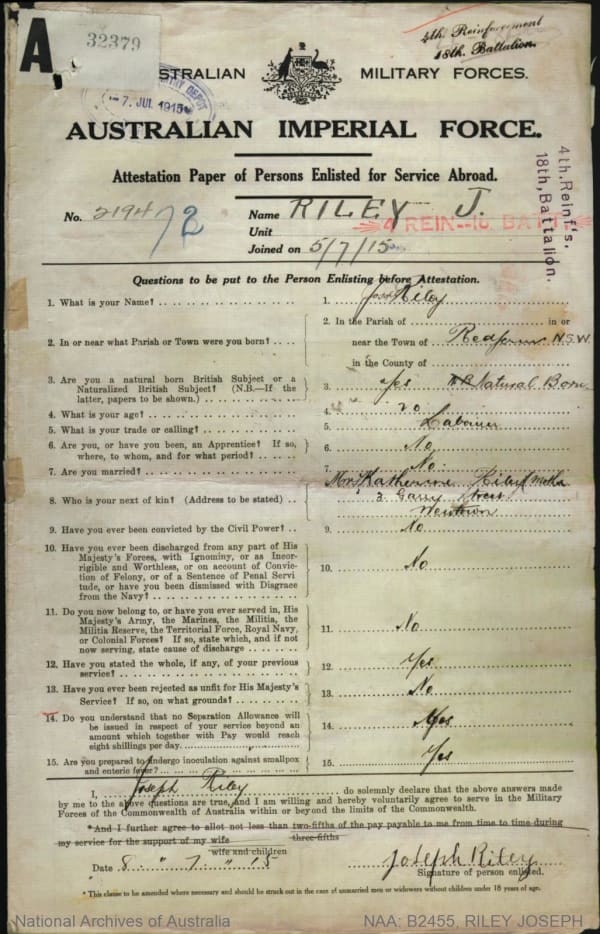 A
32379
4th. Reinforcement
18th. Battalion.
AUSTRALIAN MILITARY FORCES.
7. JUL 1915
AUSTRALIAN IMPERIAL FORCE.
Attestation Paper of Persons Enlisted for Service Abroad.
4th, Reinf's,
18th, Battalion.
No. 2194 72 Name RILEY J.
Unit 4 REIN
Joined on 5/7/15
Questions to be put to the Person Enlisting before Attestation.
1. What is your Name? 1. Joseph Riley
2. In or near what Parish or Town were you born? 2. In the Parish of in or
near the Town of Redfern N.S.W.
in the County of
3. Are you a natural born British Subject or a
Naturalized British Subject? (N.B.—If the
latter, papers to be shown.) 3. Yes Natural Born
4. What is your age? 4. 20
5. What is your trade or calling? 5. Labourer
6. Are you, or have you been, an Apprentice? If so,
where, to whom, and for what period? 6. No
7. Are you married? 7. No
8. Who is your next of kin? (Address to be stated) 8. Mrs Katherine Riley
Street
Newtown
9. Have you ever been convicted by the Civil Power? 9. No
10. Have you ever been discharged from any part of His
Majesty's Forces, with Ignominy, or as Incor-
rigible and Worthless, or on account of Convic-
tion of Felony, or of a Sentence of Penal Servi
tude, or have you been dismissed with Disgrace
from the Navy? 10. No
11. Do you now belong to, or have you ever served in, His
Majesty's Army, the Marines, the Militia, the
Militia Reserve, the Territorial Force, Royal Navy,
or Colonial Forces? If so, state which, and if not
now serving, state cause of discharge 11. No
12. Have you stated the whole, if any, of your previous
service? 12. Yes
13. Have you ever been rejected as unfit for His Majesty's
Service? If so, on what grounds? 13. No
14. Do you understand that no Separation Allowance will
be issued in respect of your service beyond an
amount which together with Pay would reach
eight shillings per day 14. Yes
15. Are you prepared to undergo inoculation against smallpox
and enteric fever? 15. Yes
I, Joseph Riley do solemnly declare that the above answers made
by me to the above questions are true, and I am willing and hereby voluntarily agree to serve in the Military
Forces of the Commonwealth of Australia within or beyond the limits of the Commonwealth.
*And I further agree to allot not less than two-fifths of the pay payable to me from time to time during
three-fifths
my service for the support of my wife
wife and children
Date 8 " 7 " 15 Joseph Riley
Signature of person enlisted.
*This clause to be amended where necessary and should be struck out in the case of unmarried men or widowers without children under 18 years of age.
National Archives of Australia NAA: B2455, RILEY JOSEPH